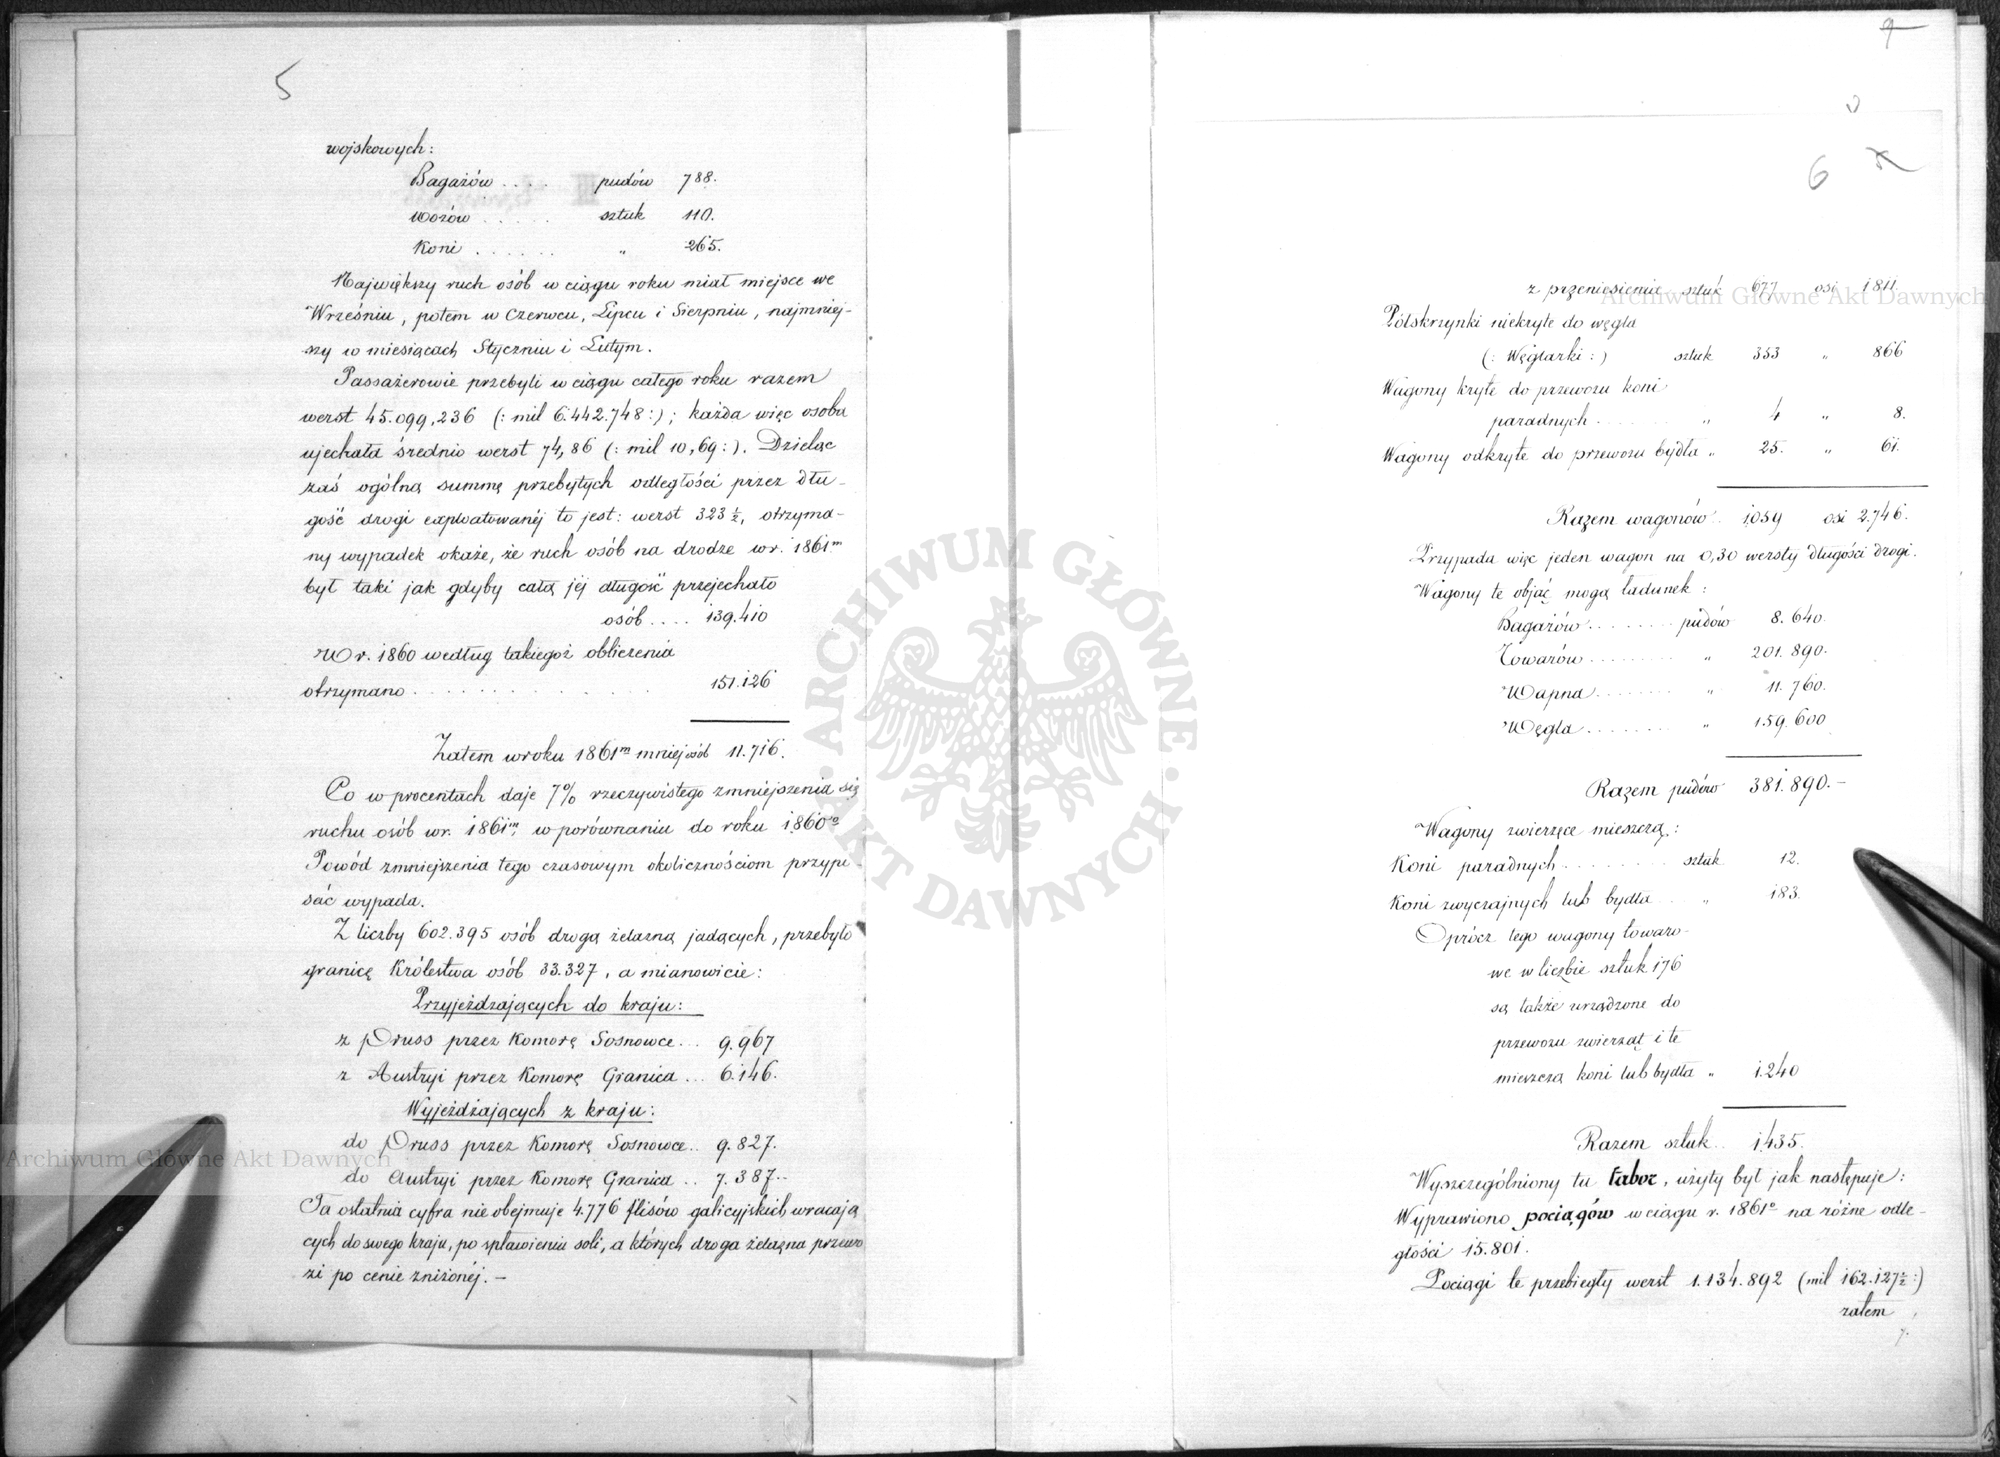 5
wojskowych:
Bagażów .... pudów 788.
Wozów ..... sztuk 110.
Koni ...... " 265.
Największy ruch osób w ciągu roku miał miejsce we
Wrześniu, potem w Czerwcu, Lipcu i Sierpniu, najmniej-
szy w miesiącach Styczniu i Lutym.
Passażerowie przebyli w ciągu całego roku razem
werst 45.099,236 (: mil 6.442.748:); każda więc osoba
ujechała średnio werst 74,86 (: mil 10,69:). Dzieląc
zaś ogólną summę przebytych odległości przez dłu-
gość drogi exploatowanéj to jest: werst 323½, otrzyma-
ny wypadek okaże, że ruch osób na drodze w r. 1861m
był taki jak gdyby całą jéj długość przejechało
osób .... 139.410
W r. 1860 według takiegoż obliczenia
otrzymano .............. 151.126
Zatem w roku 1861m mniej osób 11.716.
Co w procentach daje 7% rzeczywistego zmniejszenia się
ruchu osób w r. 1861m, w porównaniu do roku 1860o
Powód zmniejszenia tego czasowym okolicznościom przypi-
sać wypada.
Z liczby 602.395 osób drogą żelazną jadących, przebyło
granicę Królestwa osób 33.327, a mianowicie:
Przyjeżdzających do kraju:
z Pruss przez Komorę Sosnowce... 9.967
z Austryi przez Komorę Granica ... 6.146.
Wyjeżdżających z kraju:
do Pruss przez Komorę Sosnowce.. 9.827.
do Austryi przez Komorę Granica .. 7.387.-
Ta ostatnia cyfra nie obejmuje 4.776 flisów galicyjskich wracają
cych do swego kraju, po spławieniu soli, a których droga żelazna przewo
zi po cenie zniżonéj. –
9
6
z przeniesienie sztuk 677 osi 1811.
Półskrzynki niekryte do węgla
(: Węglarki :) sztuk 353 " 866
Wagony kryte do przewozu koni
paradnych ...... " 4 " 8.
Wagony odkryte do przewozu bydła " 25. " 61.
Razem wagonów.. 1.059 osi 2.746.
Przypada więc jeden wagon na 0,30 wersty długości drogi.
Wagony te objąć mogą ładunek:
Bagażów ........ pudów 8.640.
Towarów ........ " 201.890.
Wapna ........ " 11.760.
Węgla ........ " 159.600
Razem pudów 381.890.–
Wagony zwierzęce mieszczą:
Koni paradnych ........ sztuk 12.
Koni zwyczajnych lub bydła ... " 183.
Oprócz tego wagony towaro-
we w liczbie sztuk 176
są także urządzone do
przewozu zwierząt i te
mieszczą koni lub bydła " 1.240
Razem sztuk.. 1.435.
Wyszczególniony tu tabor, użyty był jak następuje:
Wyprawiono pociągów w ciągu r. 1861o na różne odle-
głości 15.801.
Pociągi te przebiegły werst 1.134.892 (mil 162.127½:)
zatem
ARCHIWUM GŁÓWNE AKT DAWNYCH
Archiwum Główne Akt Dawnych
Archiwum Główne Akt Dawnych